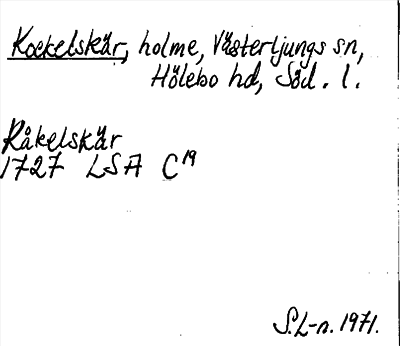 Kockelskär, holme, Västerljungs sn,
Hölebo hd, Söd. l.
Råkelskär
1727 LSA C19
S.L-n. 1971.